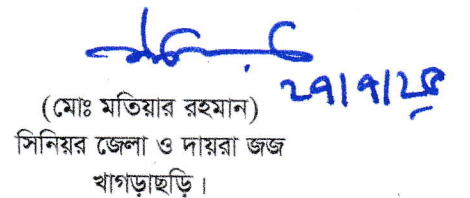 ২৭|৭|২৫
(মোঃ মতিয়ার রহমান)
সিনিয়র জেলা ও দায়রা জজ
খাগড়াছড়ি।